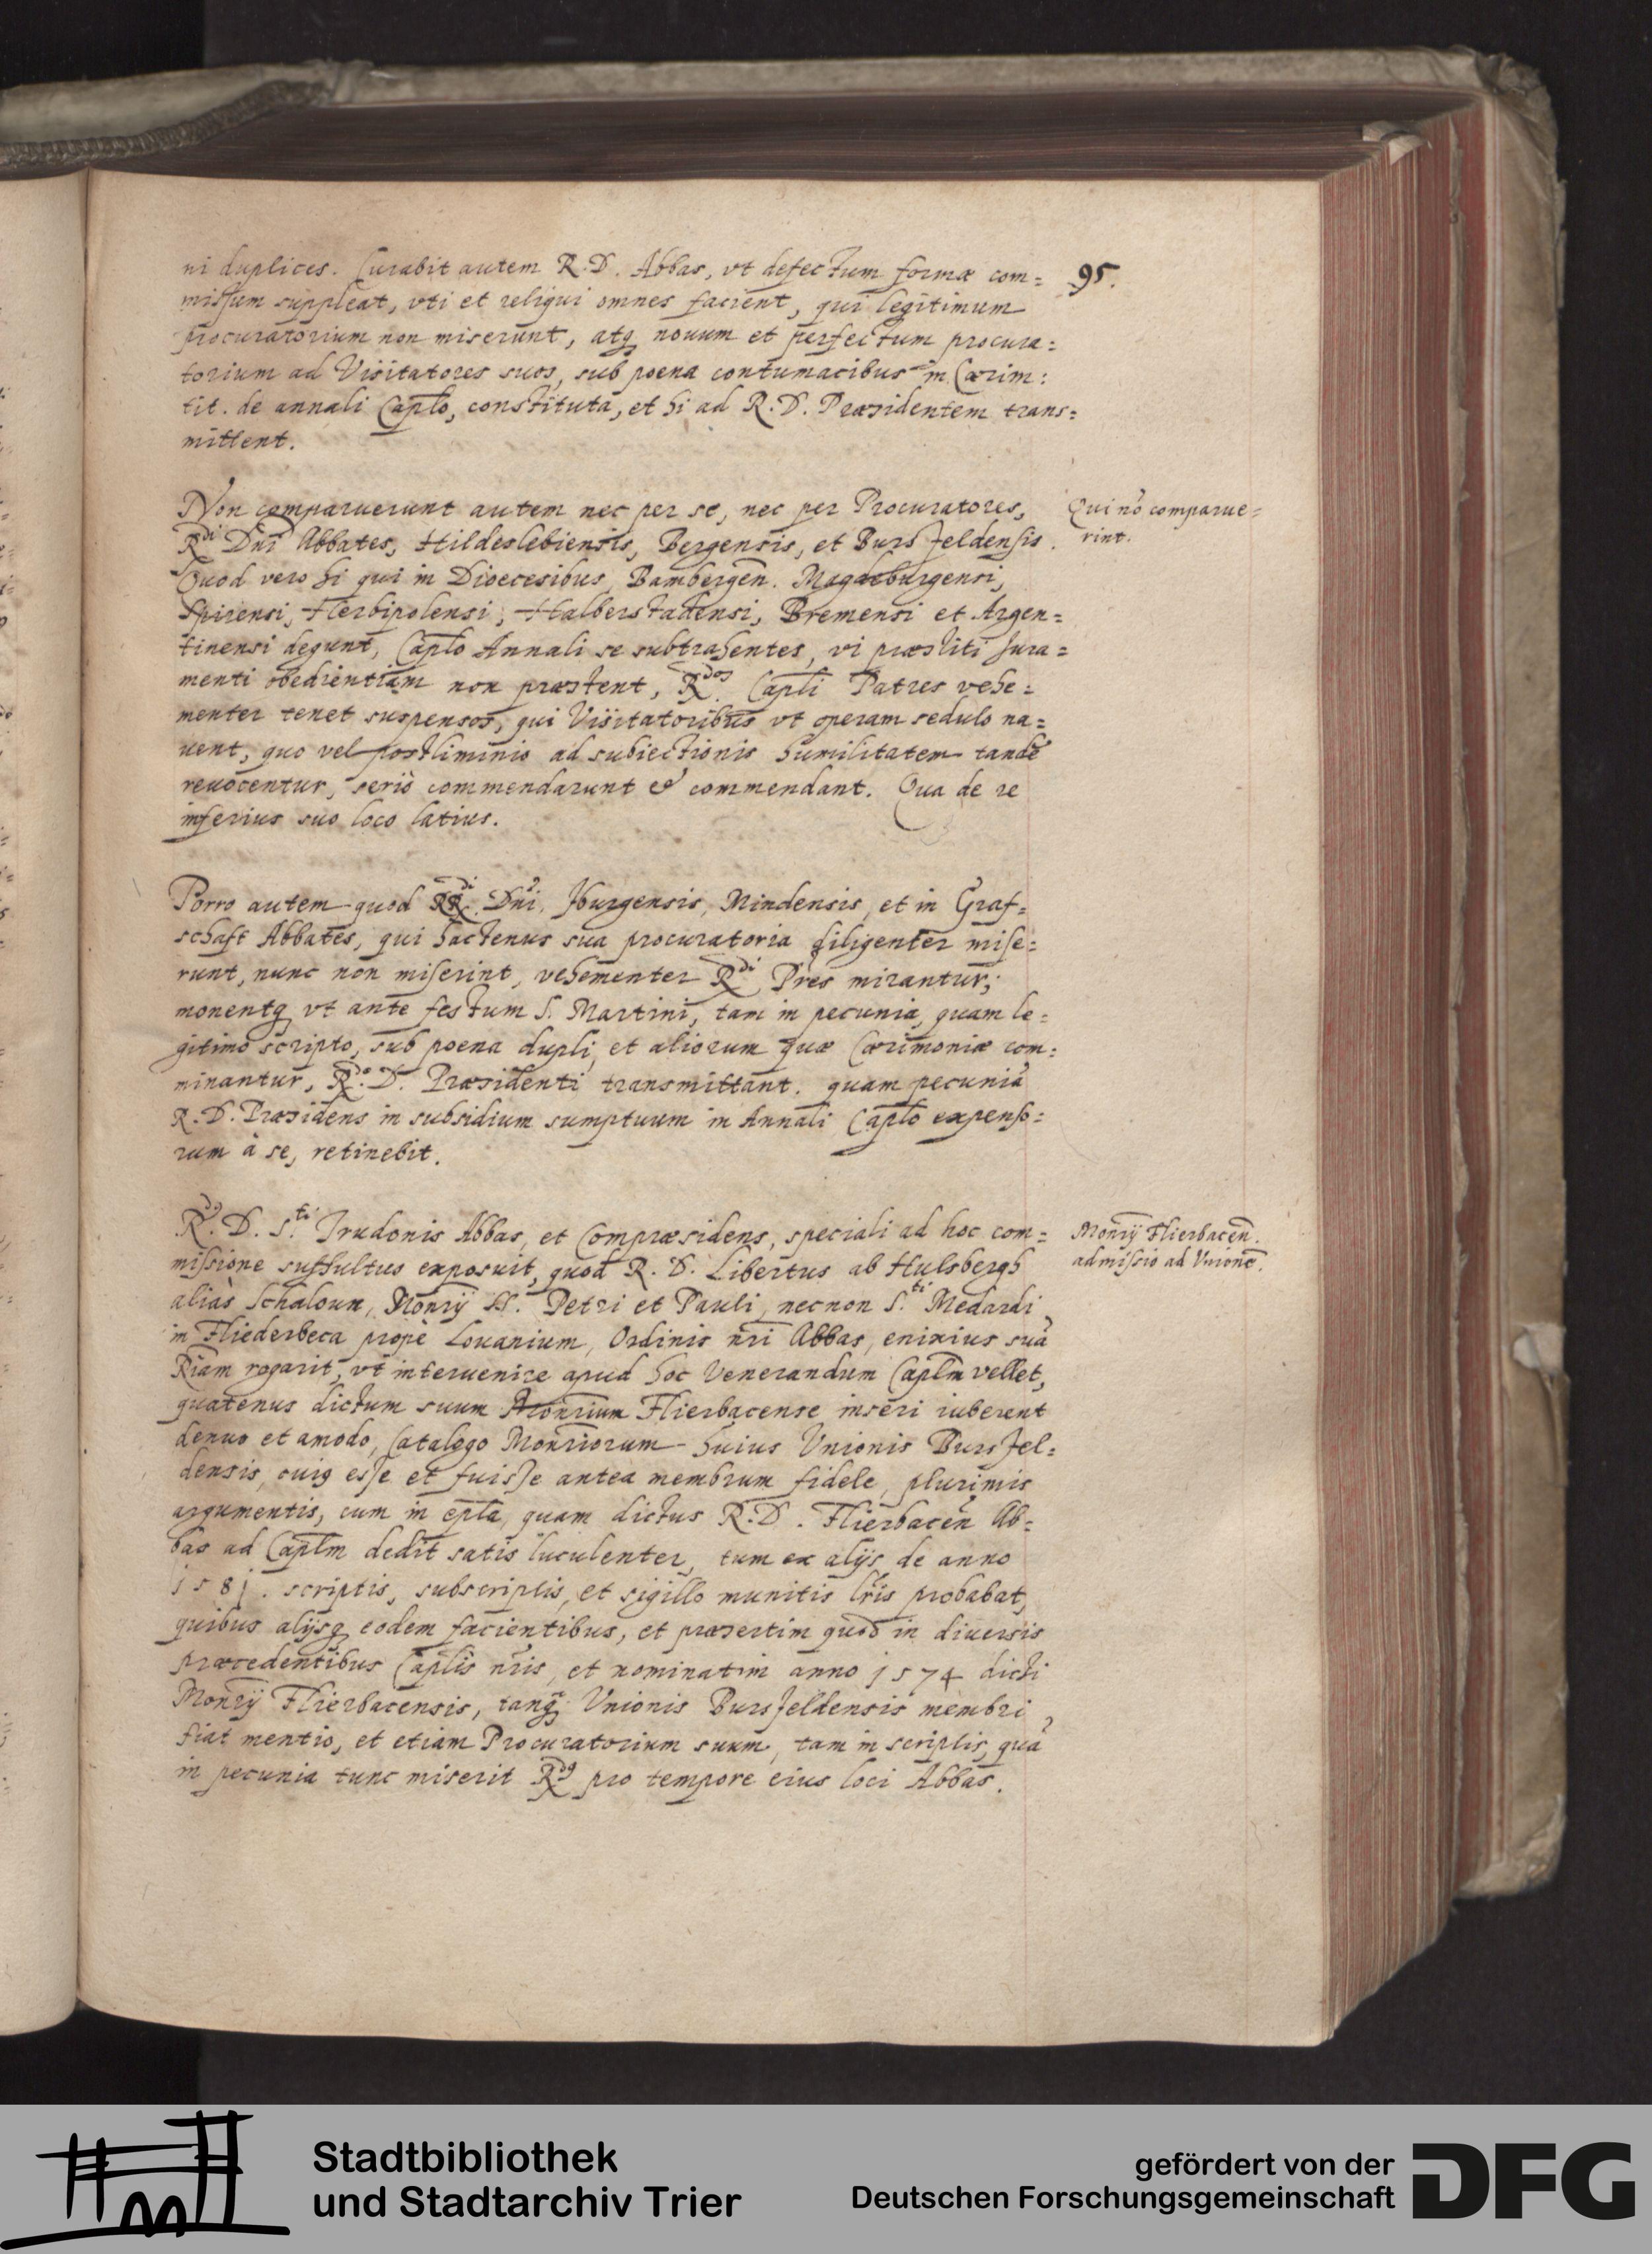 ni duplices. Curabit autem R. D. Abbas, vt defectum formæ com=
95.
missum suppleat, vti et reliqui omnes facient, qui legitimum
procuratorium non miserunt, atq nouum et perfectum procura=
torium ad Visitatores suos, sub poena contumacibus in Cærim:
tit. de annali Caplo, constituta, et hi ad R. D. Præsidentem trans=
mittent.
Non comparuerunt autem nec per se, nec per Procuratores,
Qui nō comparue=
rint.
R.di Dni Abbates, Hildeslebiensis, Bergensis, et Bursfeldensis.
Quod vero hi qui in Dioecesibus, Bambergen̄. Magdeburgensi,
Spirensi, Herbipolensi, Halberstadensi, Bremensi et Argen=
tinensi degunt, Caplo Annali se subtrahentes, vi præstiti Jura=
menti obedientiam non præstent, R.dos Capli Patres vehe=
menter tenet suspensos, qui Visitatoribus vt operam sedulo na=
uent, quo vel postliminio ad subiectionis humilitatem tandē
reuocentur, seriò commendarunt & commendant. Qua de re
inferius suo loco latius.
Porro autem quod RR.di Dni. Jburgensis, Mindensis, et in Graf=
schaft Abbates, qui hactenus sua procuratoria diligenter mise=
runt, nunc non miserint, vehementer R.di Pres mirantur;
monentq vt ante festum S. Martini, tam in pecunia, quam le=
gitimo scripto, sub poena dupli, et aliorum quæ Cærimoniæ com=
minantur, R.do D. Præsidenti transmittant. quam pecuniā
R. D. Præsidens in subsidium sumptuum in Annali Caplo expenso=
rum à se, retinebit.
R.dus D. S.ti Trudonis Abbas, et Compræsidens, speciali ad hoc com=
Monrij Flierbacen̄.
admissio ad Vnionē.
missione suffultus exposuit, quod R. D. Libertus ab Hulsbergh
aliàs Schaloun, Monrij SS. Petri et Pauli, necnon S.ti Medardi
in Fliederbeca propè Louanium, Ordinis nri Abbas, enixius suā
Rīam rogarit, vt interuenire apud hoc Venerandum Caplm vellet,
quatenus dictum suum Monrium Flierbacense inseri iuberent
denuo et amodo, Catalogo Monriorum huius Vnionis Bursfel=
densis, cuiq esse et fuisse antea membrum fidele, plurimis
argumentis, cum in epla, quam dictus R. D. Flierbacen̄ Ab=
bas ad Caplm dedit satis luculenter, tum ex alijs de anno
1581. scriptis, subscriptis, et sigillo munitis lris probabat,
quibus alijsq eodem facientibus, et præsertim quòd in diuersis
præcedentibus Caplis nris, et nominatim anno 1574 dicti
Monrij Flierbacensis, tanq Vnionis Bursfeldensis membri
fiat mentio, et etiam Procuratorium suum, tam in scriptis, quā
in pecunia tunc miserit R.dus pro tempore eius loci Abbas.
Stadtbibliothek
und Stadtarchiv Trier
gefördert von der
Deutschen Forschungsgemeinschaft
DFG